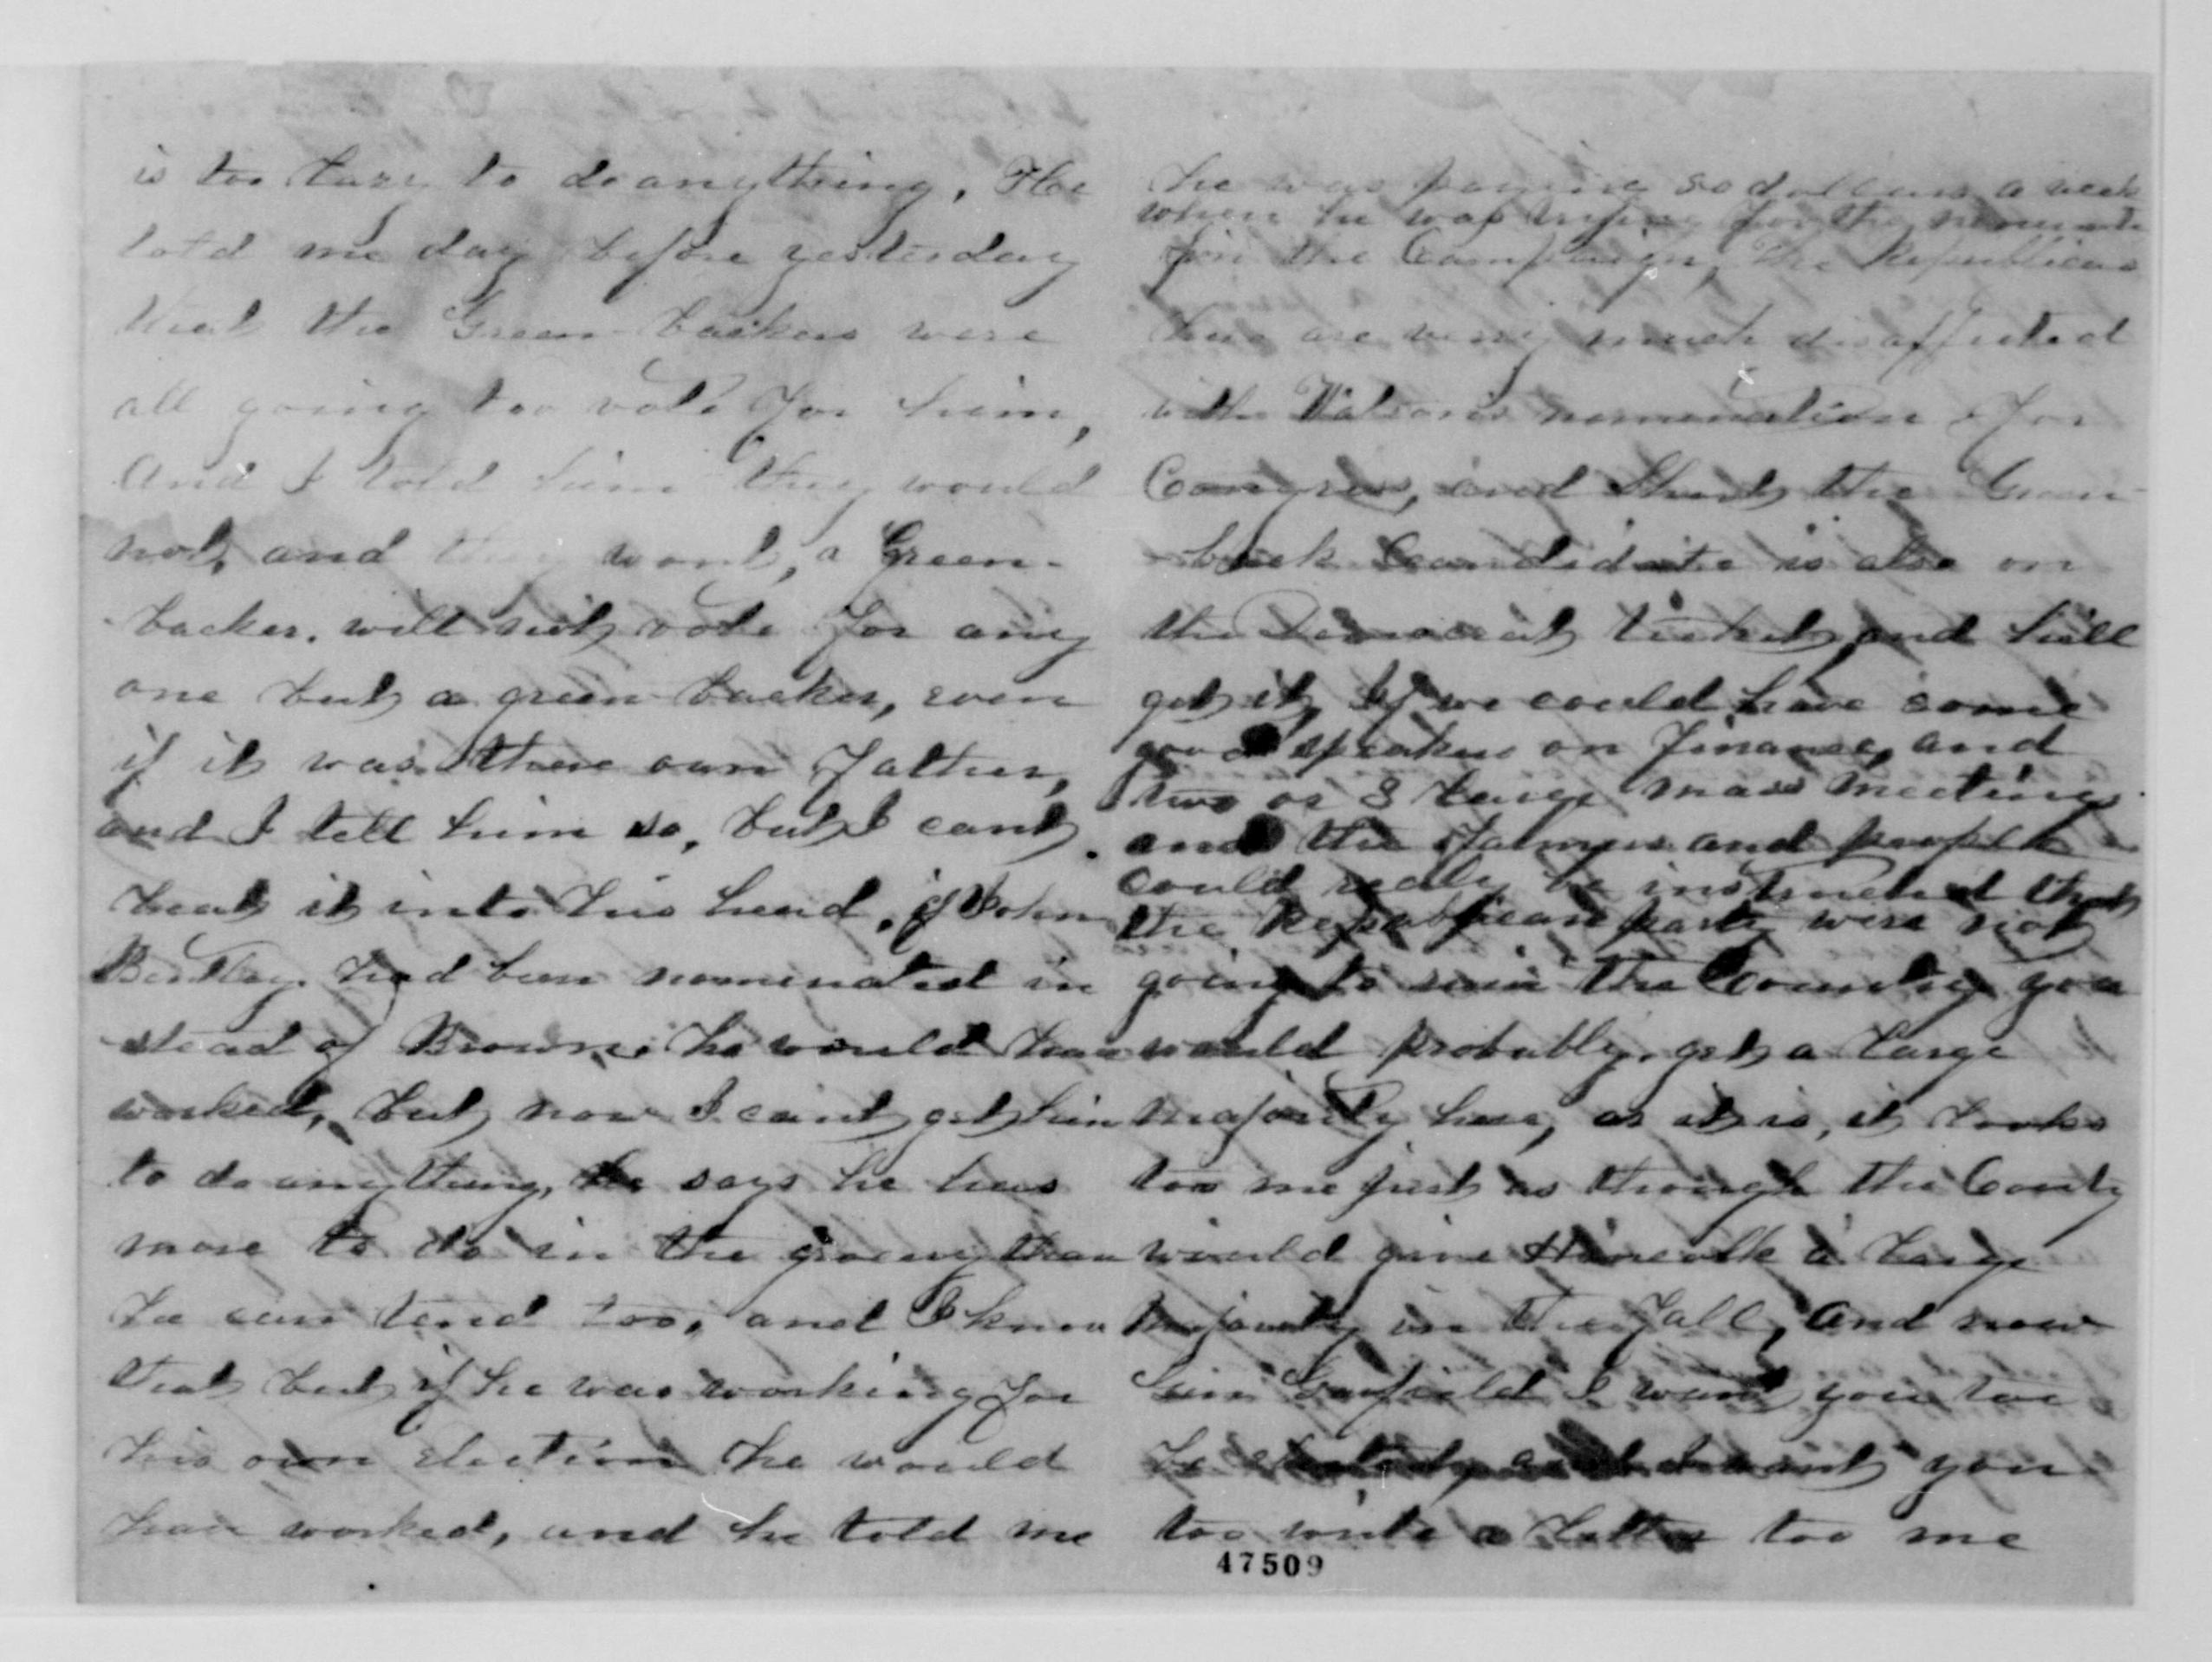 is too lazy to do anything, He
told me day before yesterday
that the Green-backers were
all going too vote for him,
and I told him they would
not, and they wont, a Green-
backer. will not vote for any
one but a green-backer, even
if it was there own Father,
and I tell him so, but I cant
beat it into his head, if John
had been nominated in
stead of Browne he would have
worked, but now I cant get him
to do anything, he says he has
more to do in the grocery than
he can tend too, and I know
that but if he was working for
his own election he would
have worked, and he told me
he was paying dollars a week
when he was for the
for the Campaign, The Republicans
here are very much disaffected
with nomination for
Congress, and the Green-
back Candidate is also on
the Democrat ticket, and
get it, If we could have some
good speakers on finance, and
two or 3 large mass meetings
and the farmers and people
could be instructed that
the Republican party were not
going to ruin the Country you
would probably, get a large
majority here, as it is, it looks
too me just as though the County
would give Hancock a large
majority in the fall, and now
Garfield I want you too
be want you
too write a letter too me
47509